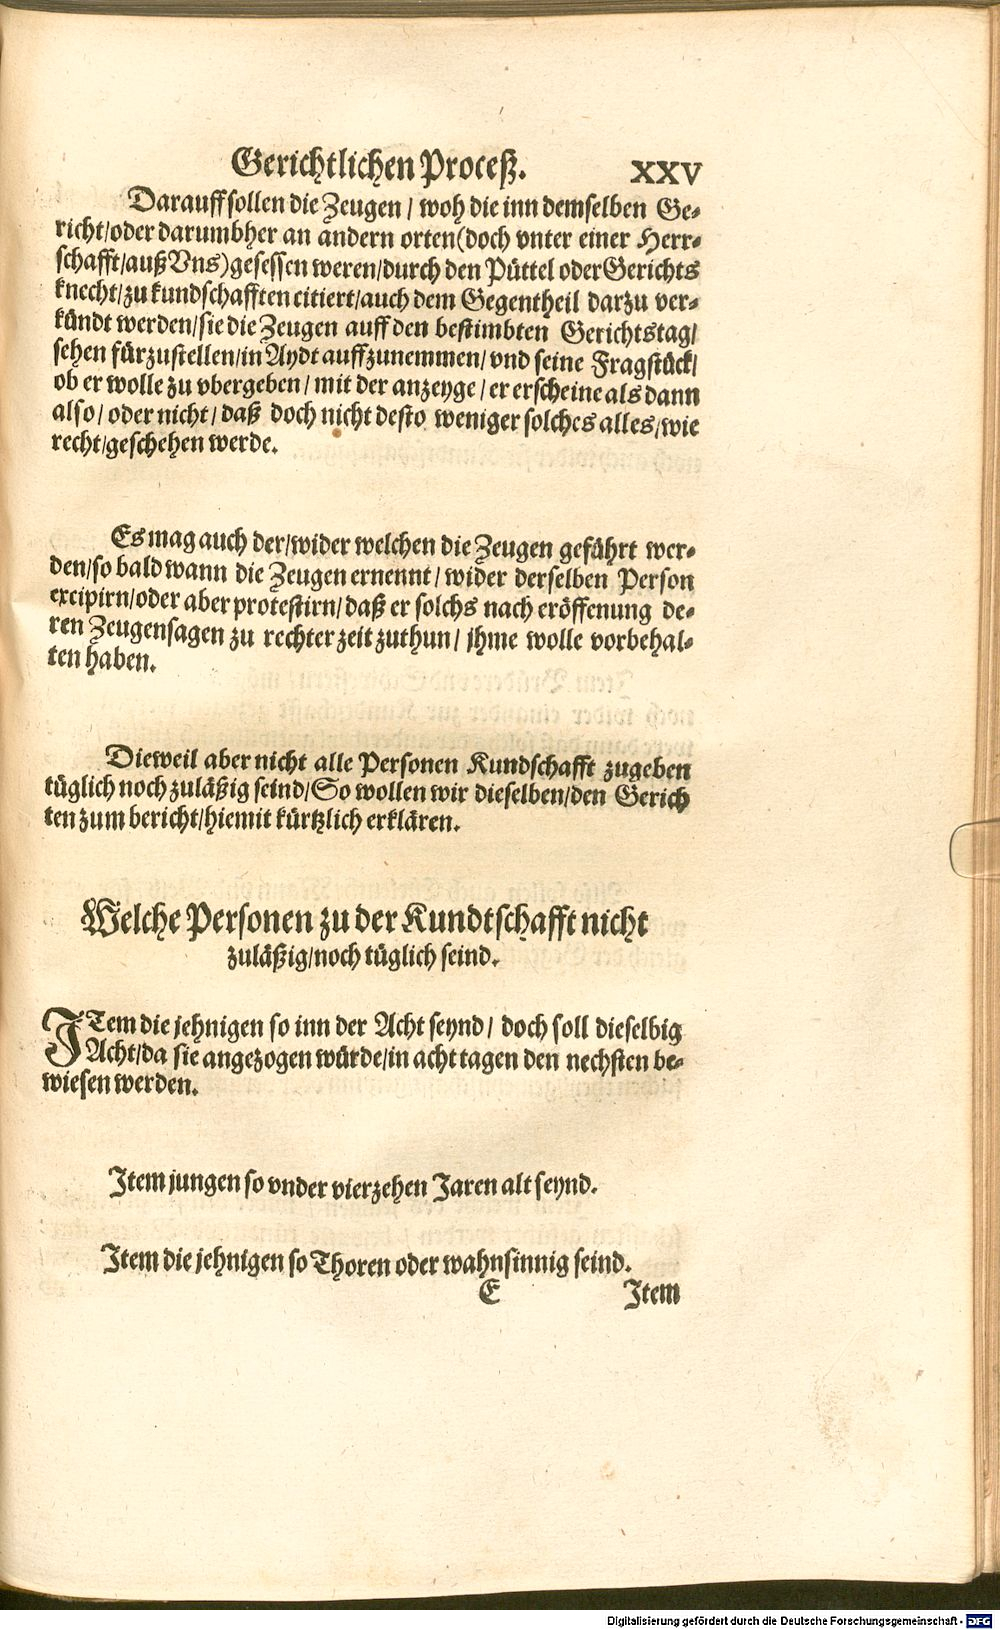 Gerichtlichen Proceß. XXV
Darauff sollen die Zeugen / woh die inn demselben Ge-
richt/oder darumbher an andern orten(doch vnter einer Herr-
schafft/auß Vns)gesessen weren/durch den Püttel oder Gerichts
knecht/zu kundschafften citiert/auch dem Gegentheil darzu ver-
kündt werden/sie die Zeugen auff den bestimbten Gerichtstag/
sehen fürzustellen/in Aydt auffzunemmen/vnd seine Fragstück/
ob er wolle zu vbergeben/mit der anzeyge/er erscheine als dann
also/oder nicht/daß doch nicht desto weniger solches alles/wie
recht/geschehen werde.
Es mag auch der/wider welchen die Zeugen geführt wer-
den/so bald wann die Zeugen ernennt/wider derselben Person
excipirn/oder aber protestirn/daß er solchs nach eröffenung de-
ren Zeugensagen zu rechter zeit zuthun/jhme wolle vorbehal-
ten haben.
Dieweil aber nicht alle Personen Kundschafft zugeben
tüglich noch zuläßig seind/So wollen wir dieselben/den Gerich
ten zum bericht/hiemit kürtzlich erklären.
Welche Personen zu der Kundtschafft nicht
zuläßig/noch tüglich seind.
JTem die jehnigen so inn der Acht seynd/ doch soll dieselbig
Acht/da sie angezogen würde/in acht tagen den nechsten be-
wiesen werden.
Jtem jungen so vnder vierzehen Jaren alt seynd.
Jtem die jehnigen so Thoren oder wahnsinnig seind.
E Jtem
Digitalisierung gefördert durch die Deutsche Forschungsgemeinschaft - DFG